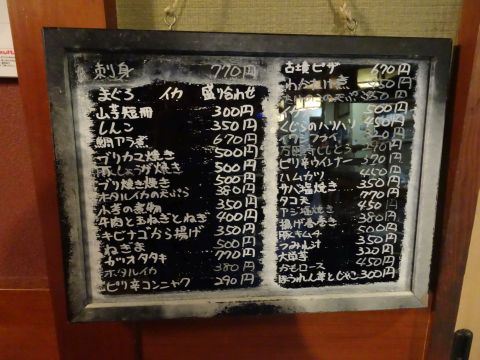 刺身 770円
まぐろ イカ 盛り合わせ
山芋短冊 300円
しんこ 350円
鯛アラ煮 670円
ブリカマ焼き 500円
豚しょうが焼き 500円
ブリ焼き 500円
ホタルイカの天ぷら 380円
小あじの素揚 350円
牛肉と玉ねぎとねぎ 400円
キビナゴから揚げ 350円
ねぎま 500円
カツオタタキ 770円
ホタルイカ 380円
ピリ辛コンニャク 290円
古墳ピザ 670円
450円
くじらのハリハリ
ピリ辛ウインナー 370円
ハムカツ 450円
サバ塩焼き 350円
タコ天 450円
アジ塩焼き 380円
揚げ春巻き 500円
豚キムチ 500円
つみれ汁 350円
大向き 450円
かもロース 450円
ほうれん草とじゃこ 300円